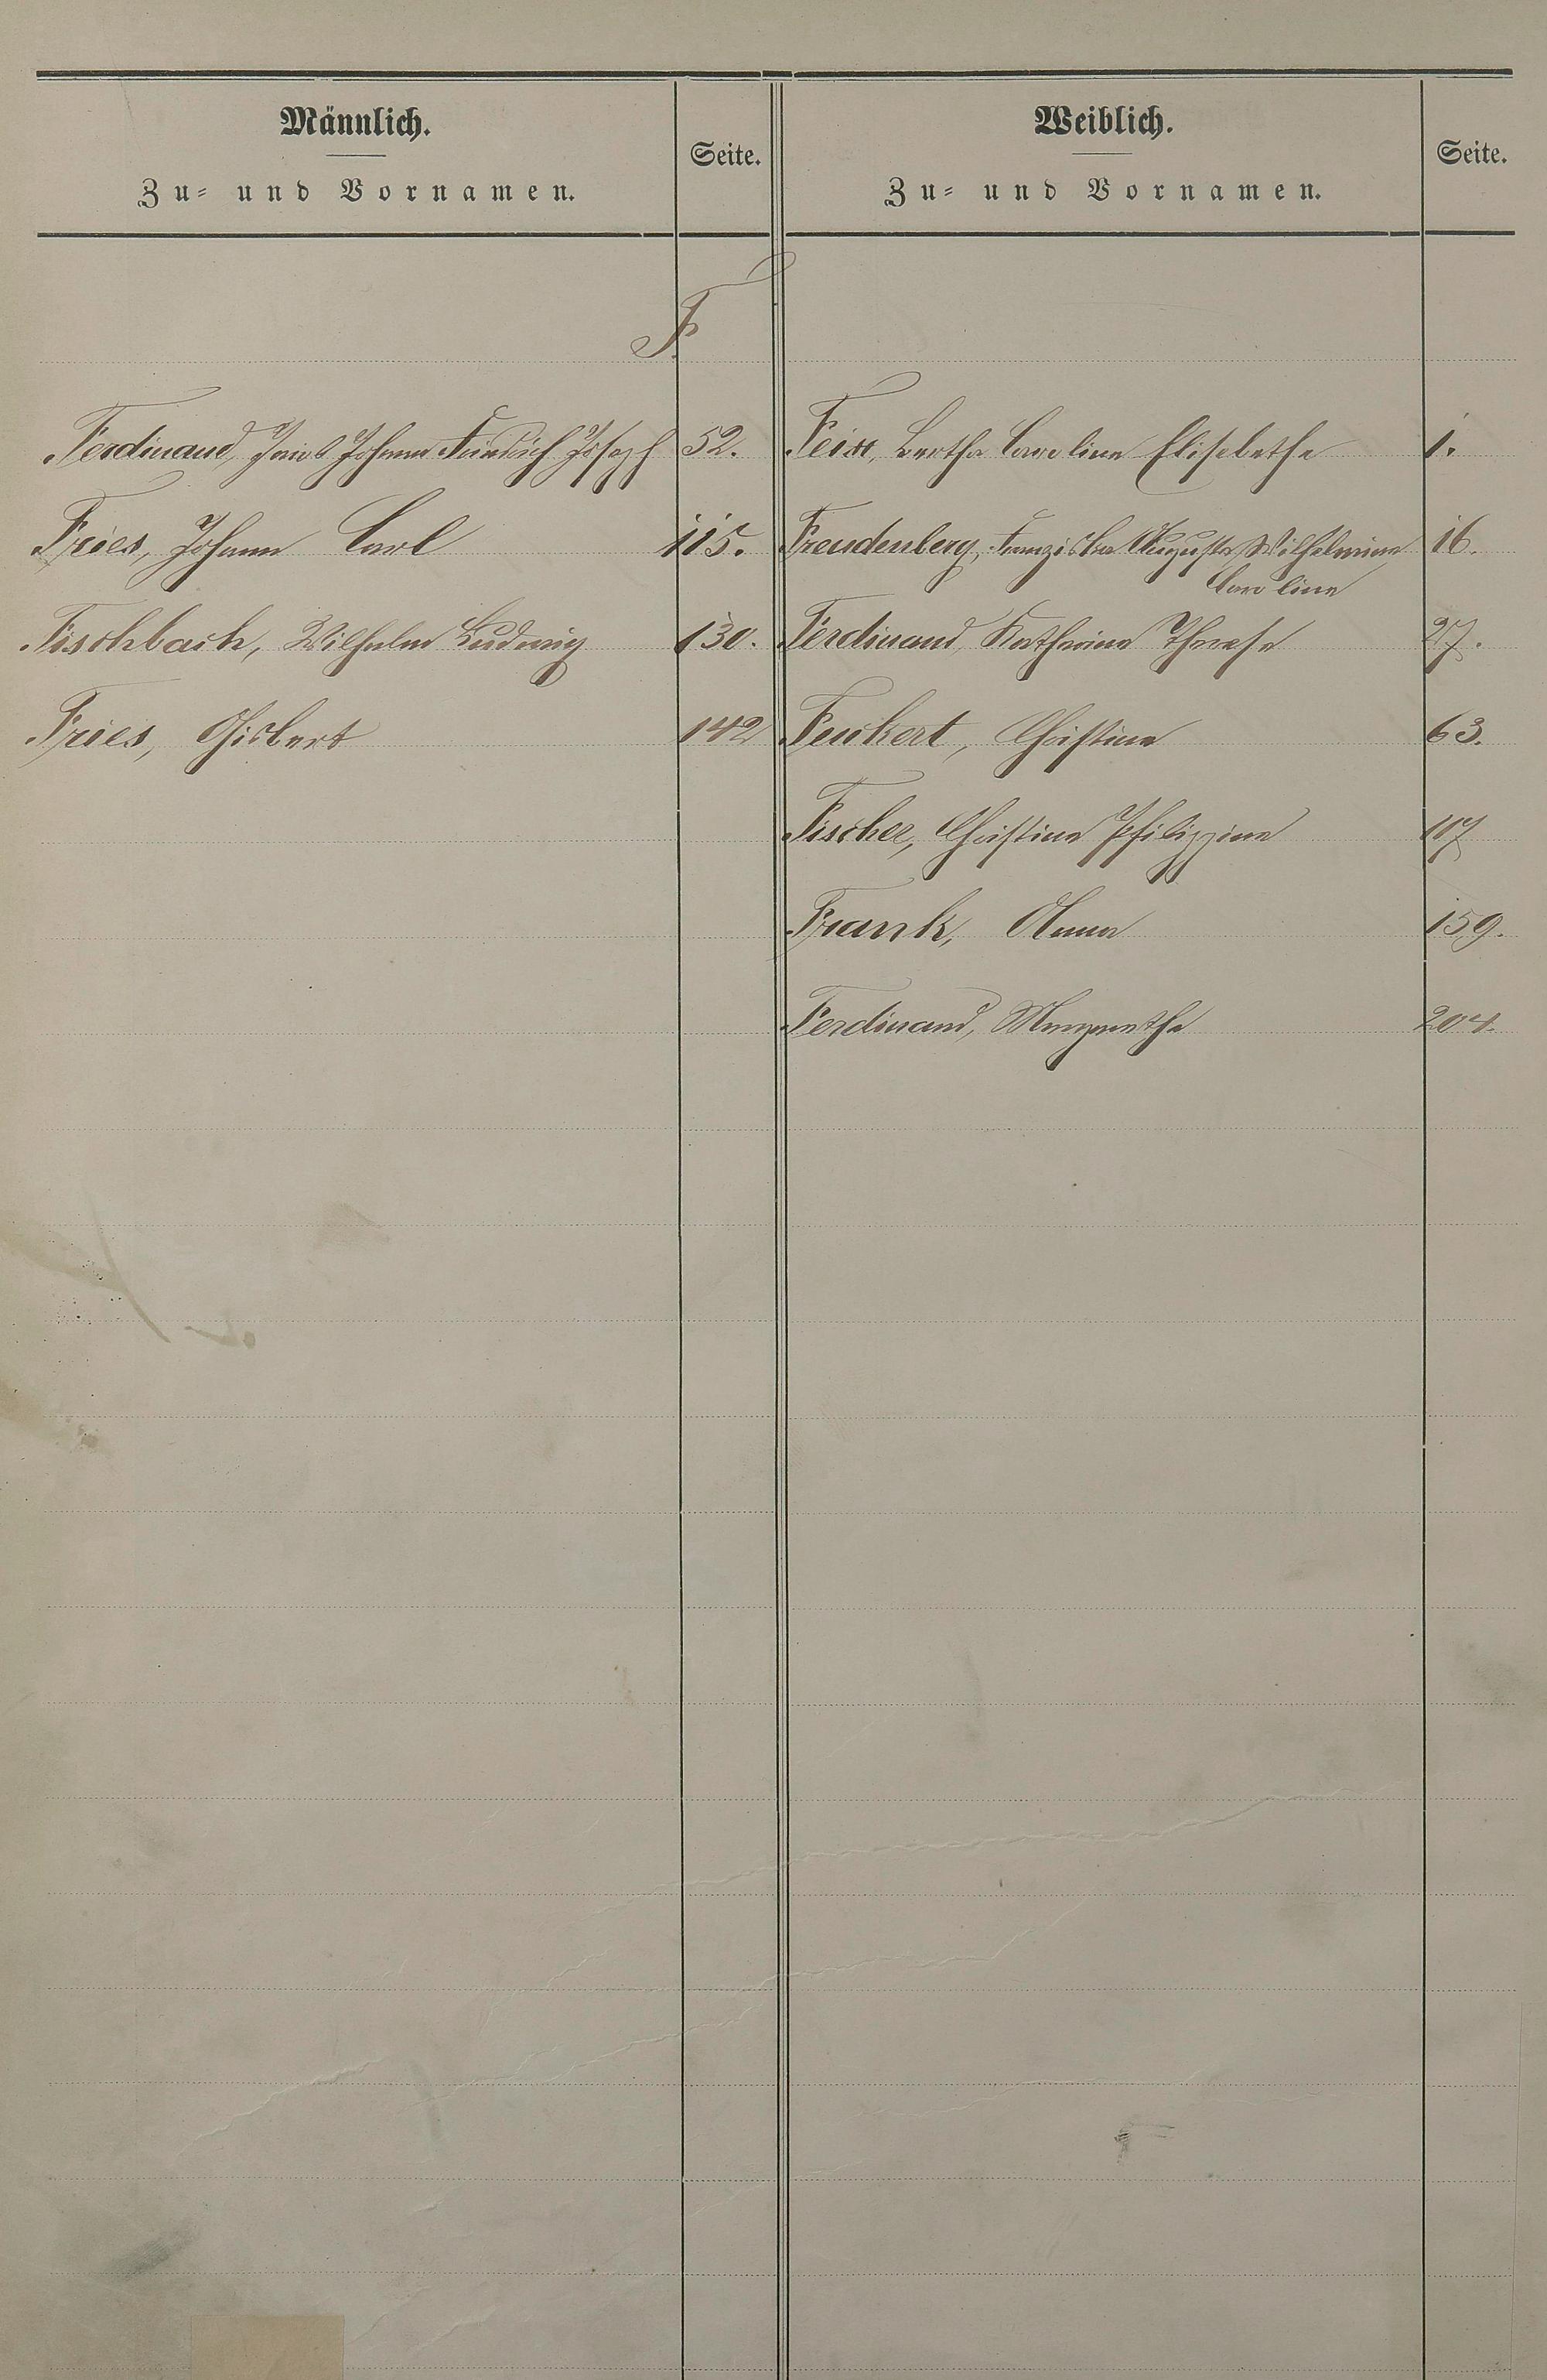 Männlich.
Zu- und Vornamen.
Seite.
Weiblich.
Zu- und Vornamen.
Seite.
F.
Ferdinand, Johann Friedrich Joseph 52.
Fries, Johann Carl 115.
Fischbach, Wilhelm Ludwig 130.
Fries, Gisbert 142
Feix, Bertha Caroline Elisabetha 1.
Freudenberg, Franziska Auguste Wilhelmine 16.
Caroline
Ferdinand, Katharina Therese 27.
Feickert, Christine 63.
Fischer, Christine Philippine 117
Frank, Anna 159.
Ferdinand, Margaretha 204.